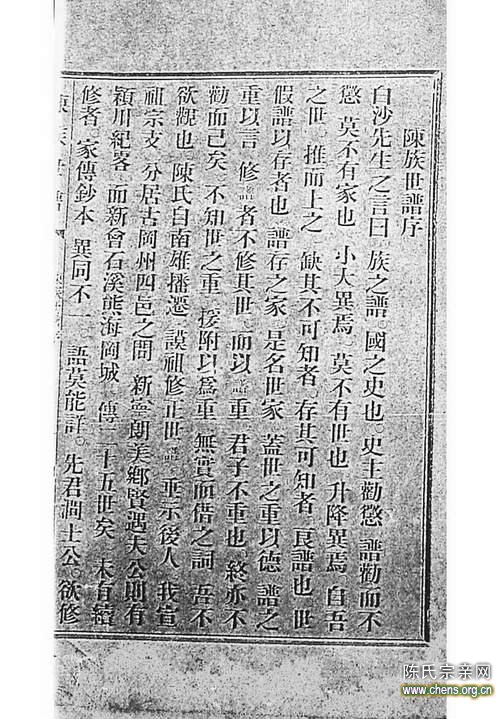 陳族世譜序
白沙先生之言曰。族之譜。國之史也。史主勸懲。譜勸而不
懲。莫不有家也。小大異焉。莫不有世也。升降異焉。自吾
之世。推而上之。缺其不可知者。存其可知者。良譜也。世
假譜以存者也。譜存之家。是名世家。蓋世之重以德。譜之
重以言。修譜者不修其世。而以譜重。君子不重也。終亦不
勸而已矣。不知世之重。援附以為重。無實而借之詞。吾不
欲觀也。陳氏自南雄播遷。謨祖修正世譜。垂示後人。我宣
祖宗支。分居古岡州四邑之間。新寧朗美鄉賢遇夫公則有
潁川紀畧。而新會石溪熊海岡城。傳二十五世矣。未有續
修者。家傳鈔本。異同不一。語莫能詳。先君澗士公。欲修
陳氏宗亲网
www.chens.org.cn